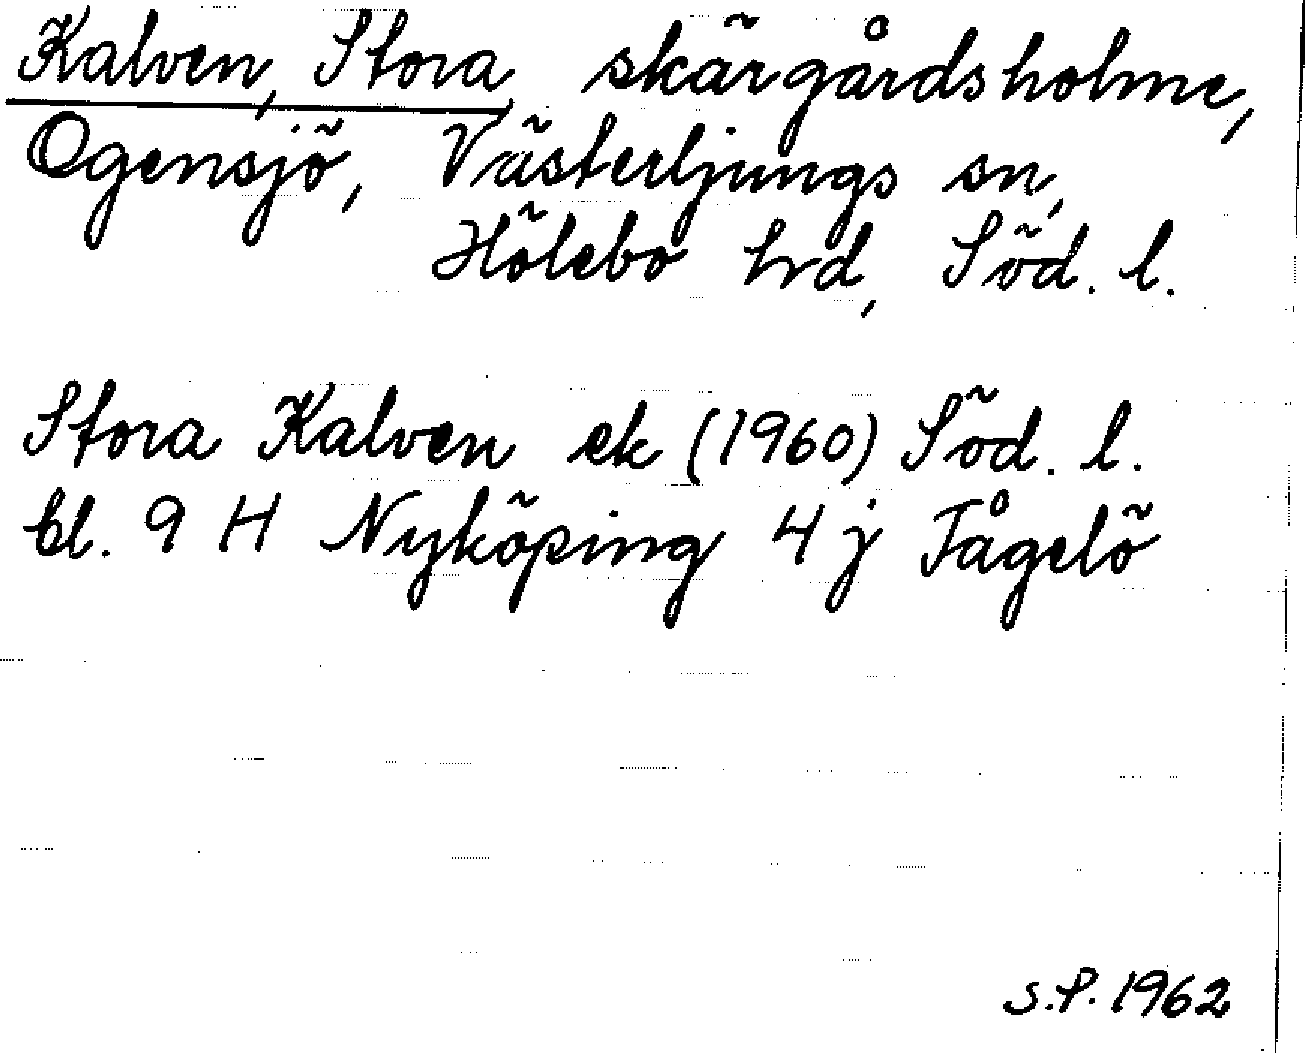 Kalven, Stora, skärgårdsholme,
Ogensjö, Västerljungs sn,
Hölebo hrd, Söd. l.
Stora Kalven ek (1960) Söd. l.
bl. 9 H Nyköping 4 j Fågelö
S.P. 1962